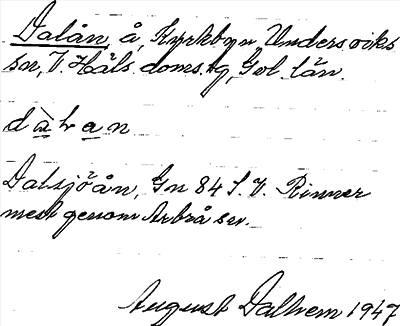 Dalån, å, Kyrkbyn Undersviks
sn, V. Häls. doms.g, Gvl. län.
dàban
Dalsjöån, Gn 84 S.V. Rinner
mest genom Arbrå sn.
August Dalhem 1947